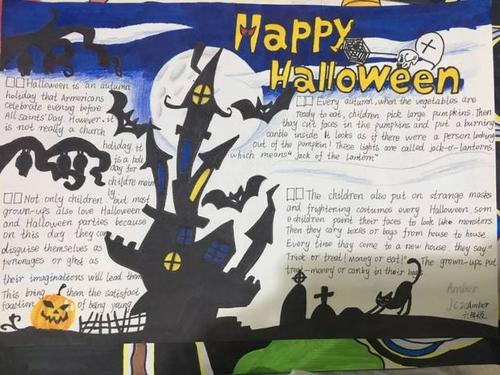 Happy
Halloween
Halloween is an autumn
holiday that Armericans
celebrate evening before
All Saints' Day. However. it
is not really a church
holiday, it
is a holi
day for
childre mainly
Every autumn, when the vegetables are
ready to eat, children pick large pumpkins. Then
they cut faces in the pumpkins and put a burning
candle inside. It looks as if there were a person looking
out of the pumpkin! These lights are called jack-o'-lanterns
which means "Jack of the lantern"
Not only children, but most
grown-ups also love Halloween
and Halloween parties because
on this day they can
disguise themselves as
personages or ghost as
their imaginations will lead them
This bring them the satisfact
of being young.
The children also put on strange masks
and frightening costumes every Halloween. som
e children paint their faces to look like monsters.
Then they carry boxes or bags from house to house.
Every time they come to a new house, they say "
Trick or treat! Money or eat!" The grown-ups put
treat-money or canky in their bags
Amber